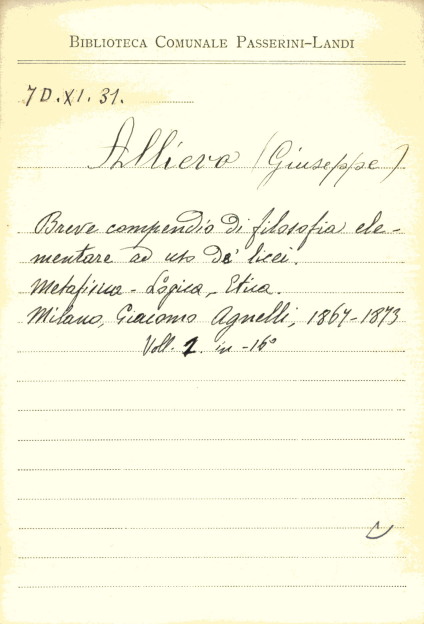 BIBLIOTECA COMUNALE PASSERINI-LANDI
7D.XI.31.
Allievo (Giuseppe)
Breve compendio di filosofia ele-
mentare ad uso de' licei.
Metafisica - Logica - Etica.
Milano, Giacomo Agnelli, 1867-1873
Voll. 2. in-16°